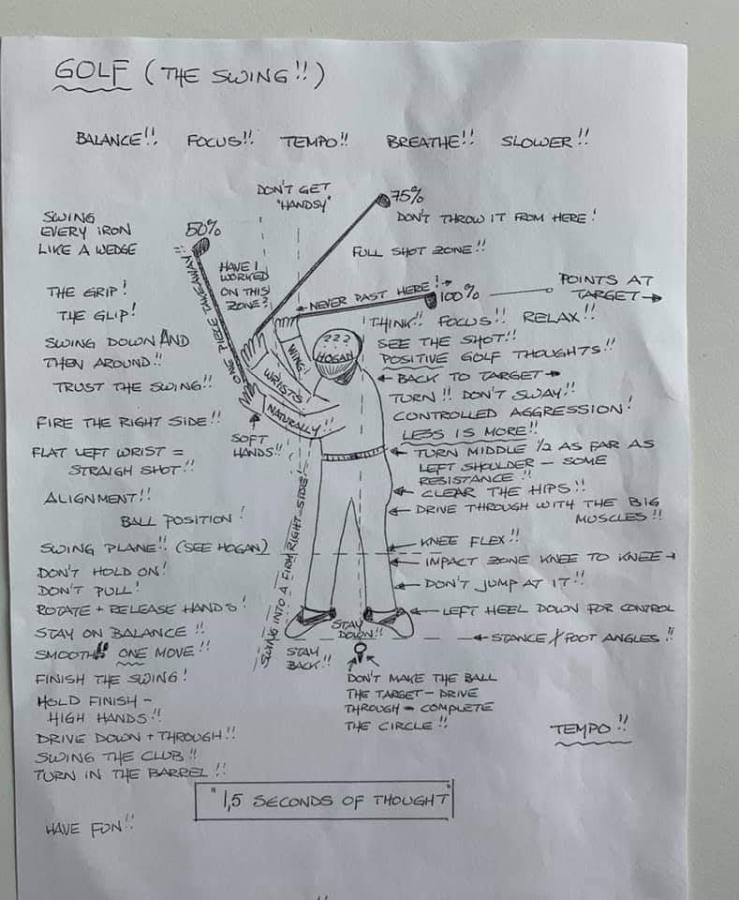 GOLF (THE SWING!!)
BALANCE!! FOCUS!! TEMPO!! BREATHE!! SLOWER!!
DON'T GET
"HANDSY"
75%
DON'T THROW IT FROM HERE!
FULL SHOT ZONE!!
50%
HAVE I
WORKED
ON THIS
ZONE?
!! ONE PIECE TAKEAWAY!!
NEVER PAST HERE!
100%
POINTS AT
TARGET
SWING
EVERY IRON
LIKE A WEDGE
THE GRIP!
THE GLIP!
SWING DOWN AND
THEN AROUND!!
TRUST THE SWING!!
FIRE THE RIGHT SIDE!!
FLAT LEFT WRIST =
STRAIGH SHOT!!
ALIGNMENT!!
BALL POSITION!
SWING PLANE!! (SEE HOGAN)
DON'T HOLD ON!
DON'T PULL!
ROTATE + RELEASE HANDS!
STAY ON BALANCE!!
SMOOTH!! ONE MOVE!!
FINISH THE SWING!
HOLD FINISH -
HIGH HANDS!!
DRIVE DOWN + THROUGH!!
SWING THE CLUB!!
TURN IN THE BARREL!!
HAVE FUN!!
???
HOGAN
WING!
WRISTS
NATURALLY!!
SOFT
HANDS!!
SWING INTO A FIRM RIGHT SIDE!
THINK!! FOCUS!! RELAX!!
SEE THE SHOT!!
POSITIVE GOLF THOUGHTS!!
BACK TO TARGET
TURN!! DON'T SWAY!!
CONTROLLED AGGRESSION!
LESS IS MORE!!
TURN MIDDLE 1/2 AS FAR AS
LEFT SHOULDER - SOME
RESISTANCE!!
CLEAR THE HIPS!!
DRIVE THROUGH WITH THE BIG
MUSCLES!!
KNEE FLEX!!
IMPACT ZONE KNEE TO KNEE
DON'T JUMP AT IT!!
LEFT HEEL DOWN FOR CONTROL
STANCE / FOOT ANGLES!!
STAY
DOWN!!
STAY
BACK!!
DON'T MAKE THE BALL
THE TARGET - DRIVE
THROUGH - COMPLETE
THE CIRCLE!!
TEMPO!!
"1,5 SECONDS OF THOUGHT"